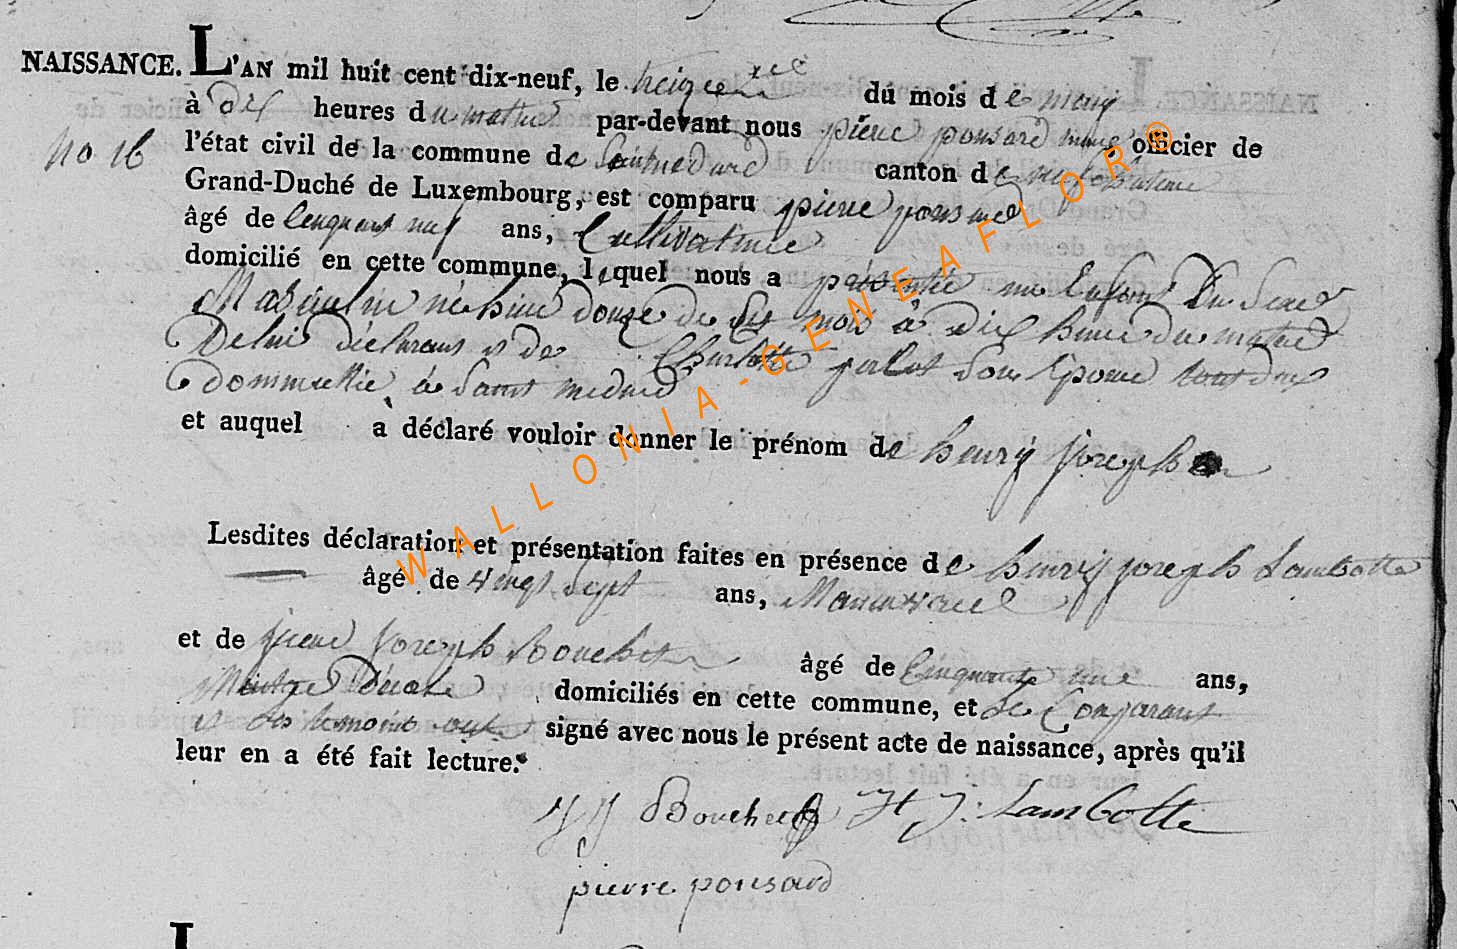 NAISSANCE. L'AN mil huit cent dix-neuf, le treizieme du mois de may
à dix heures du matin par-devant nous pierre ponsard mayr officier de
No 16 l'état civil de la commune de Saint medard canton de neufchateau
Grand-Duché de Luxembourg, est comparu pierre ponsard
âgé de Cenquant neuf ans, Cultivateure
domicilié en cette commune, lequel nous a présenté un Enfant Du Sexe
Masculin né hier douze de Ses mois à Dix heure Du matin
De lui déclarant et de Charlotte Son Epouse tout deux
domicilié à Saint medard
et auquel à déclaré vouloir donner le prénom de henry Joseph
Lesdites déclaration et présentation faites en présence de henry joseph Lambotte
âgé de vingt Sept ans,
et de pierre Joseph Bouchet âgé de Cinquante une ans,
Maitre D'école domiciliés en cette commune, et Le Comparant
et Les temoins ont signé avec nous le présent acte de naissance, après qu'il
leur en a été fait lecture.
Bouchet H J: Lambotte
pierre ponsard
L
WALLONIA-GENEAFLOR®